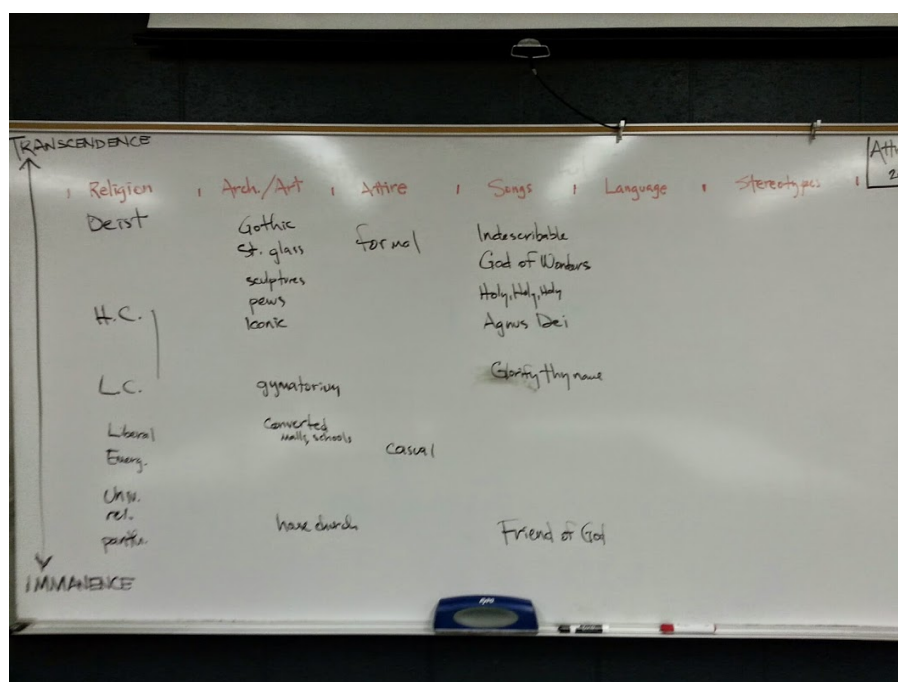 TRANSCENDENCE
Religion Arch./Art Attire Songs Language Stereotypes
Deist
H.C.
L.C.
Liberal
Emerg.
Univ.
rel.
panth.
Gothic
St. glass
sculptures
pews
Iconic
gymatorium
Converted
malls, schools
house church
formal
casual
Indescribable
God of Wonders
Holy, Holy, Holy
Agnus Dei
Glorify thy name
Friend of God
IMMANENCE
2